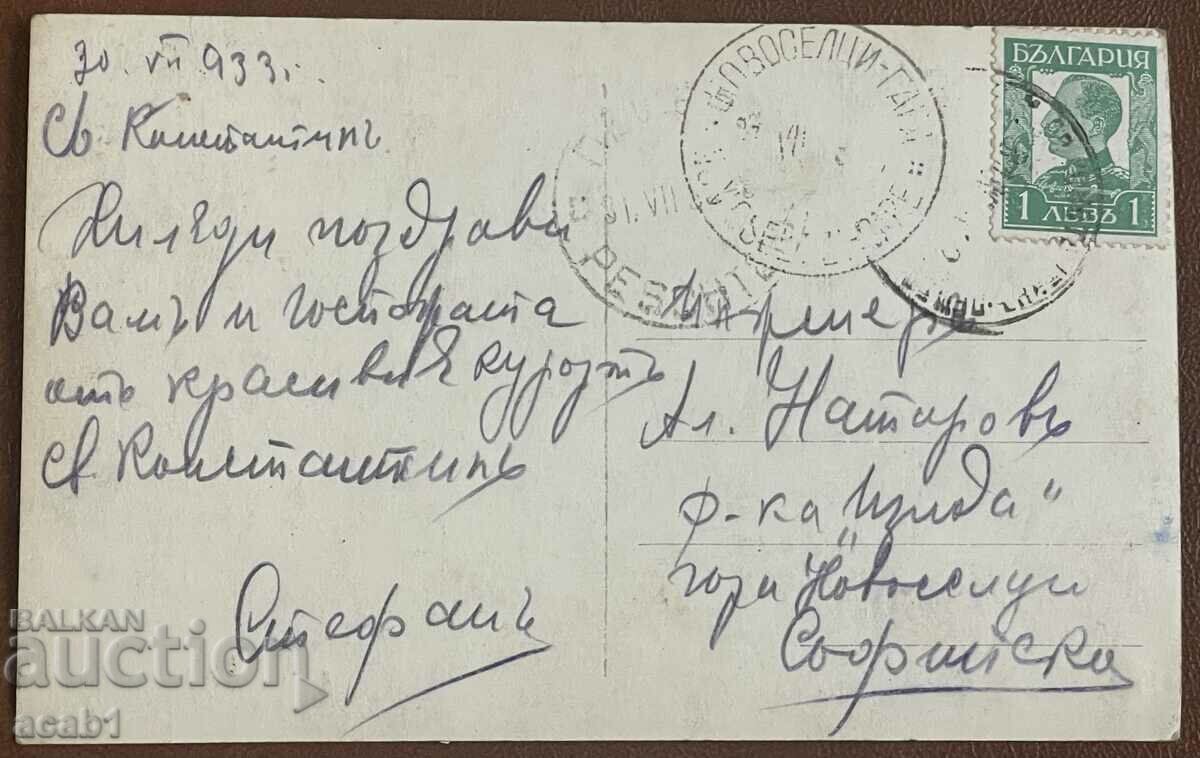 30. VII 933 г.
Св. Константинъ
Хиляди поздрави
Вамъ и госпожата
отъ красивия курортъ
Св. Константинъ
Стефанъ
БЪЛГАРИЯ
1 ЛЕВЪ 1
НОВОСЕЛЦИ-ГАРА
31. VII
Ал. Натаровъ
ф-ка „
гара Новоселци
Софийска
BALKAN
auction
acab1